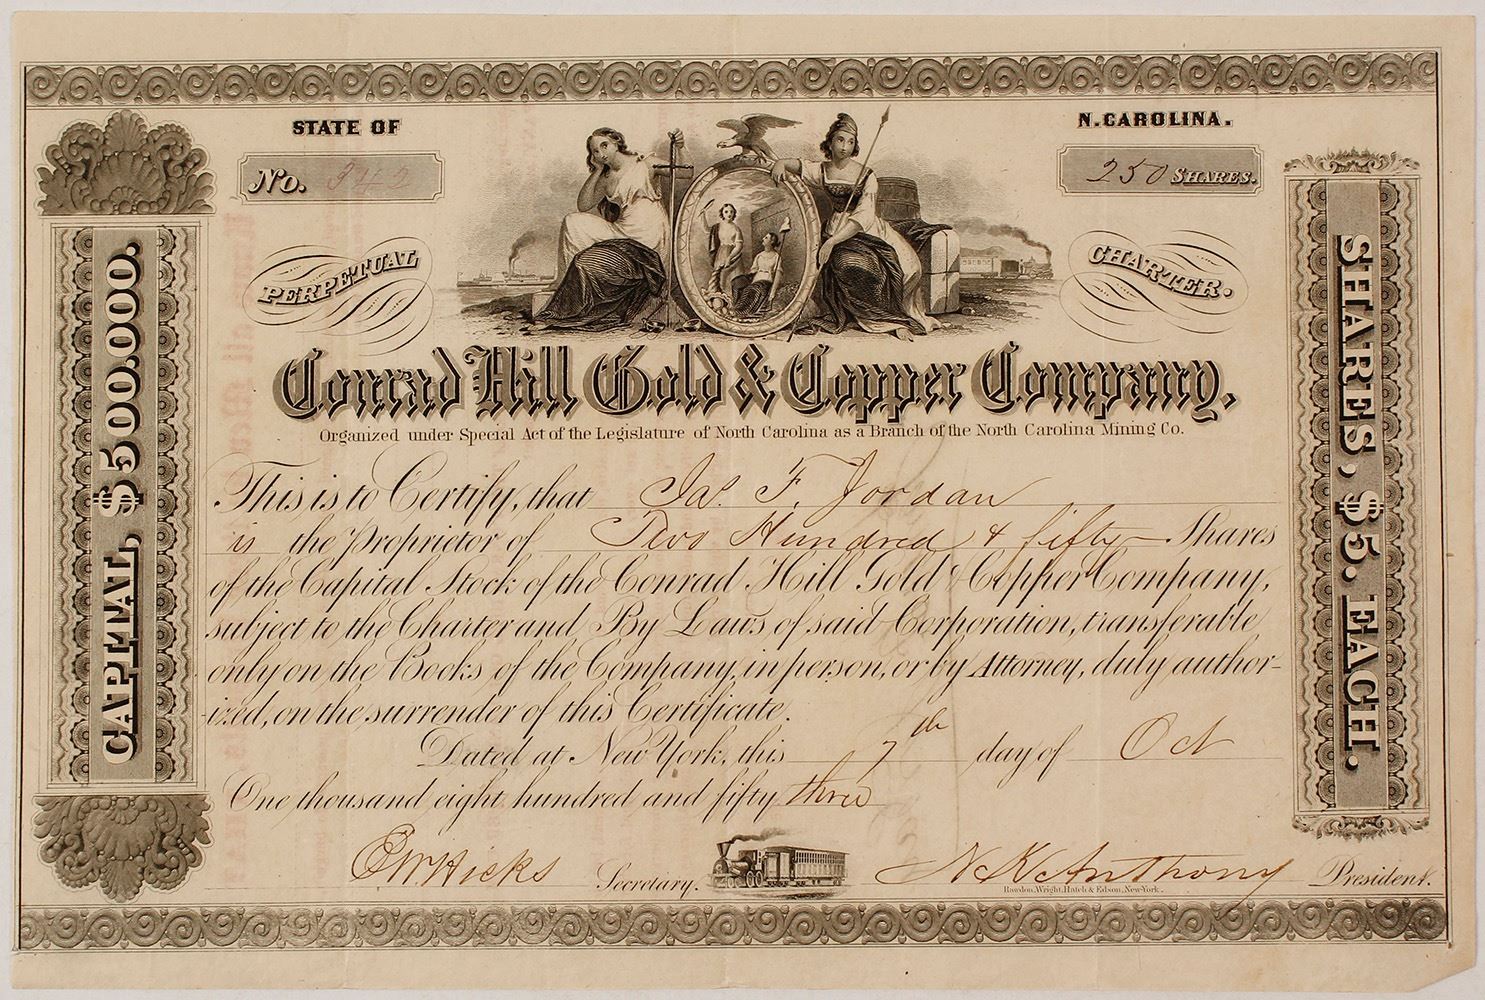 STATE OF
N. CAROLINA.
No. 342
250 SHARES.
PERPETUAL
CHARTER.
CAPITAL, $500.000.
SHARES, $5. EACH.
Conrad Hill Gold & Copper Company,
Organized under Special Act of the Legislature of North Carolina as a Branch of the North Carolina Mining Co.
This is to Certify, that Jas. F. Jordan
is the Proprietor of Two Hundred & fifty Shares
of the Capital Stock of the Conrad Hill Gold & Copper Company,
subject to the Charter and By Laws of said Corporation, transferable
only on the Books of the Company, in person, or by Attorney, duly author-
ized, on the surrender of this Certificate.
Dated at New York, this 7th day of Oct
One thousand eight hundred and fifty three
Hicks Secretary. Anthony President.
Rawdon, Wright, Hatch & Edson, New-York.